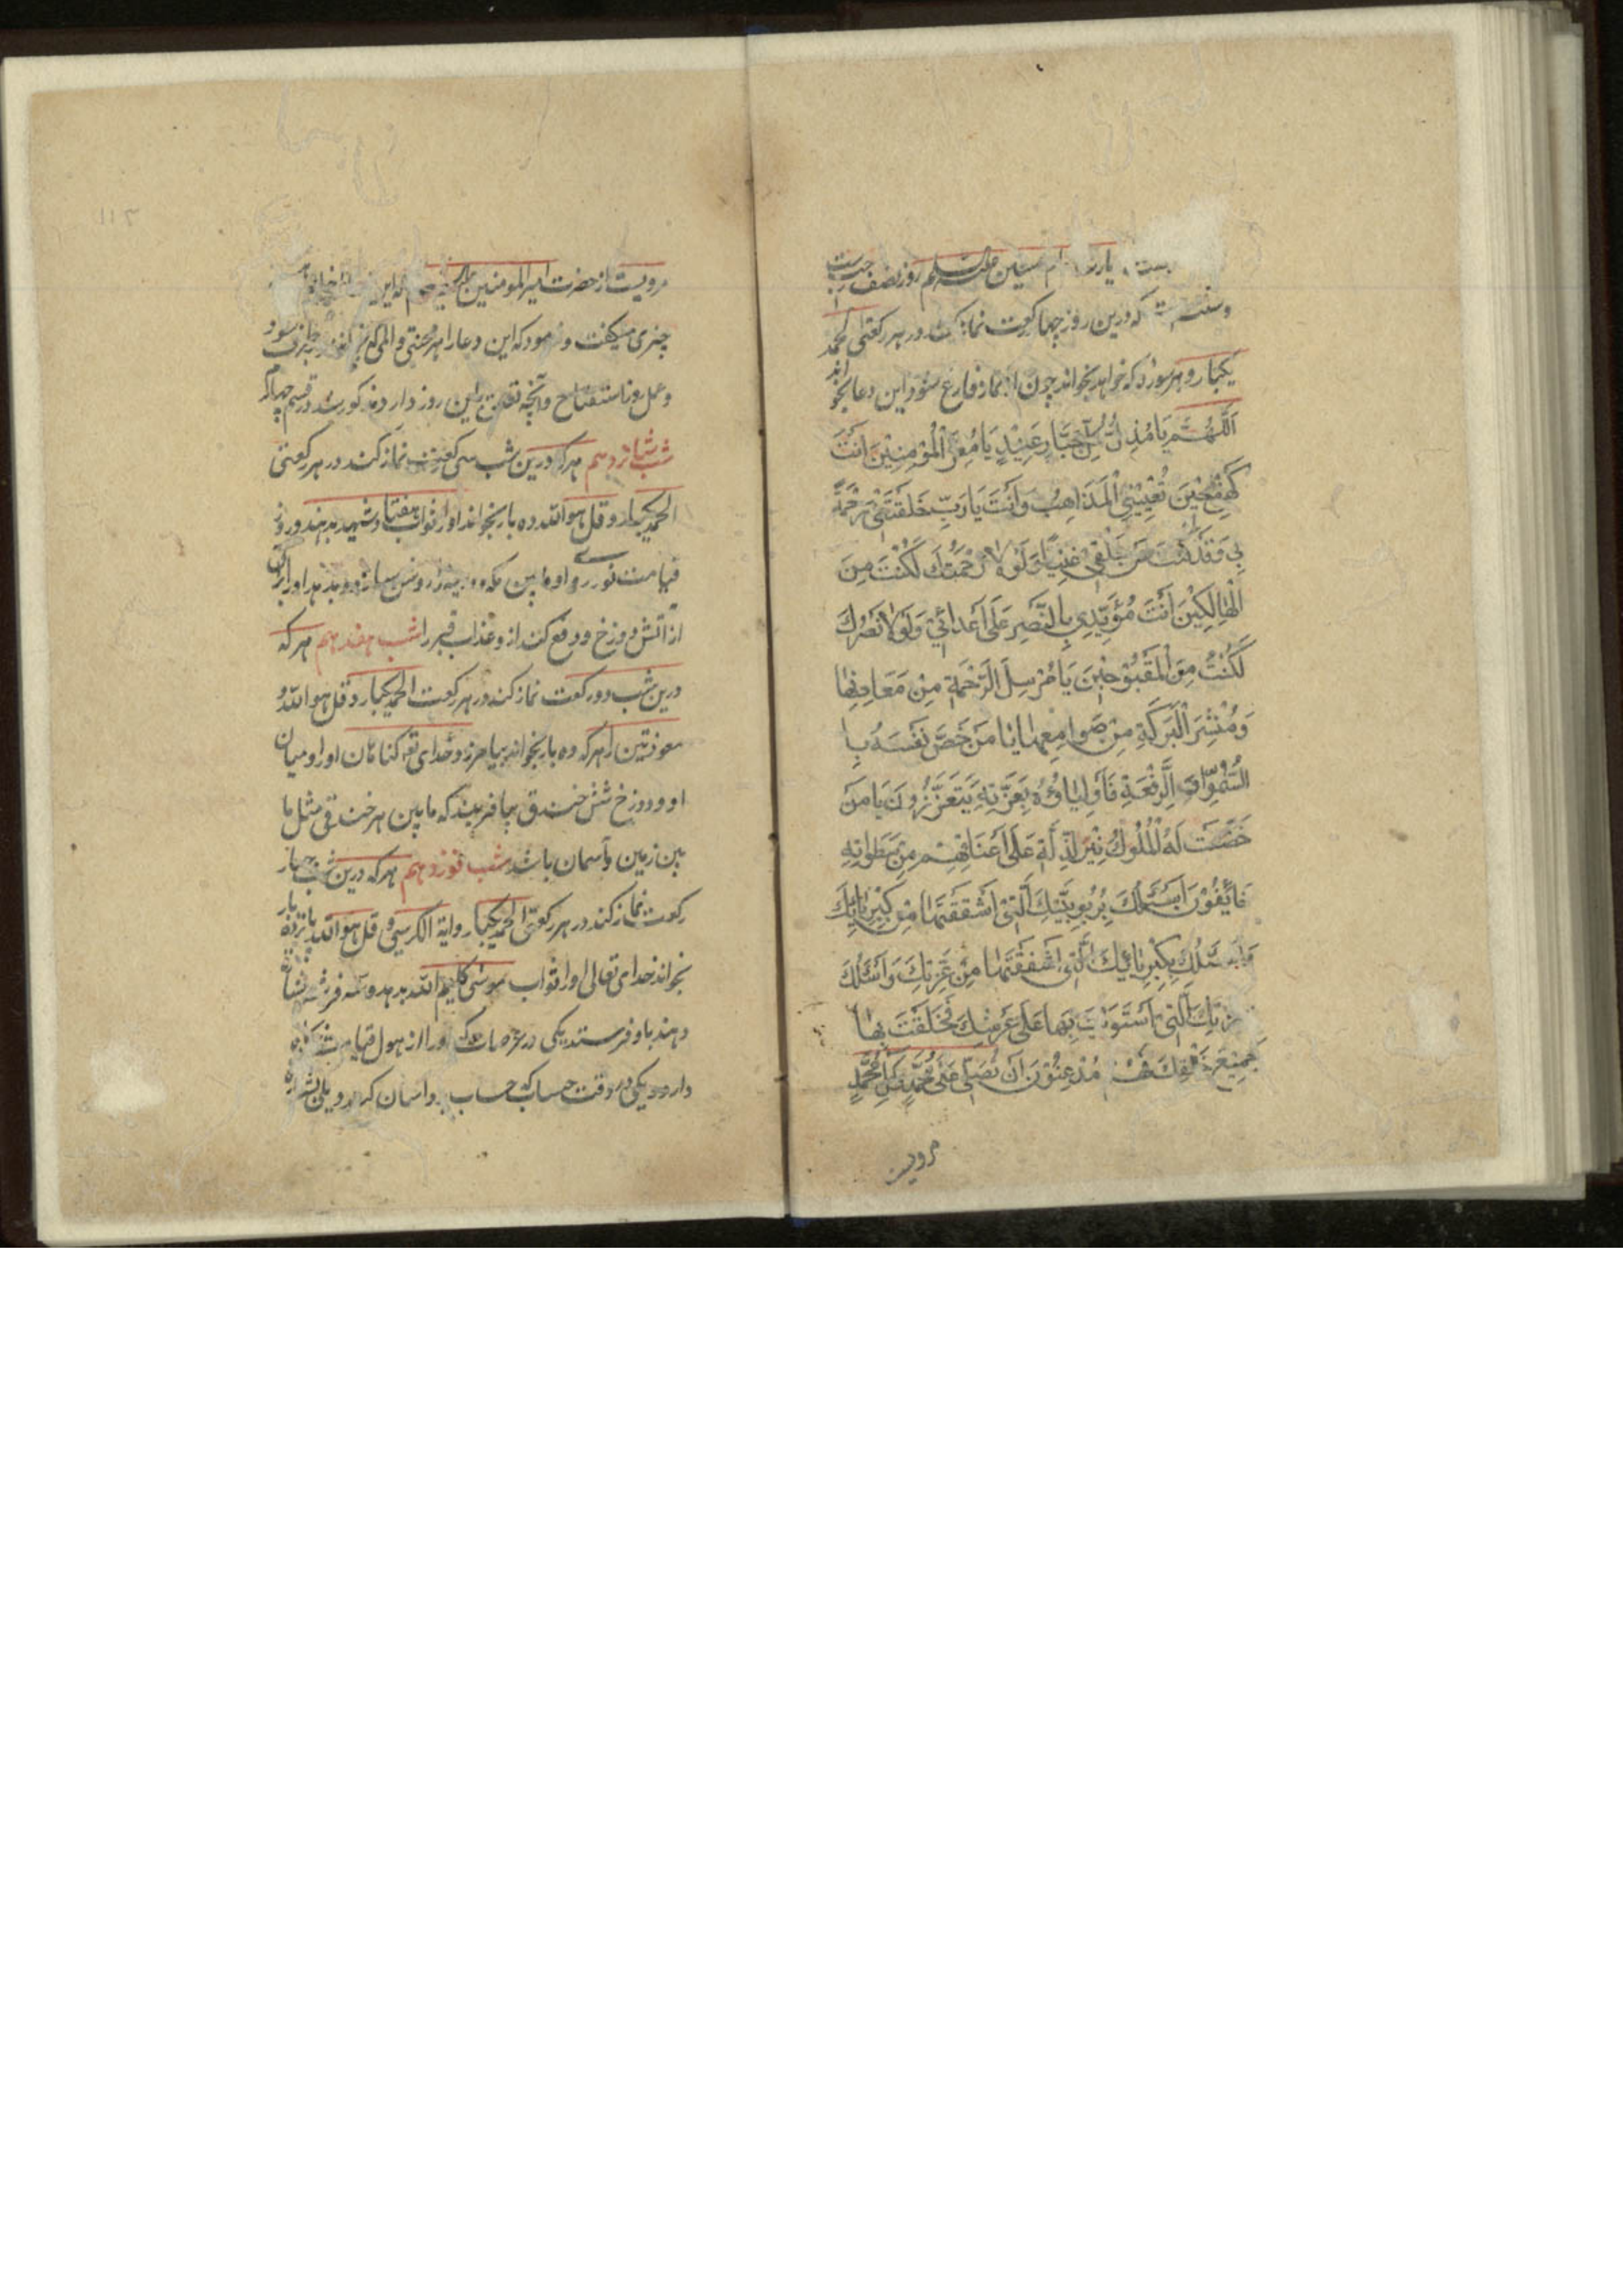 زیارت امام حسین علیه السلام روز نصف رجب است
و سنت است که درین روز چهار رکعت نماز کند در هر رکعتی الحمد
یکبار و هر سوره که خواهد بخواند چون از نماز فارغ شود این دعا بخواند
اَللّٰهُمَّ يَا مُذِلَّ كُلِّ جَبَّارٍ عَنِيْدٍ يَا مُعِزَّ الْمُؤْمِنِيْنَ اَنْتَ
كَهْفِيْ حِيْنَ تُعْيِيْنِي الْمَذَاهِبُ وَاَنْتَ يَا رَبِّ خَلَقْتَنِيْ رَحْمَةً
بِيْ وَقَدْ كُنْتَ عَنْ خَلْقِيْ غَنِيًّا وَلَوْلَا رَحْمَتُكَ لَكُنْتُ مِنَ
الْهَالِكِيْنَ اَنْتَ مُؤَيِّدِيْ بِالنَّصْرِ عَلٰى اَعْدَائِيْ وَلَوْلَا نَصْرُكَ
لَكُنْتُ مِنَ الْمَقْبُوْحِيْنَ يَا مُرْسِلَ الرَّحْمَةِ مِنْ مَعَادِنِهَا
وَمُنْشِرَ الْبَرَكَةِ مِنْ صَوَامِعِهَا يَا مَنْ خَصَّ نَفْسَهُ بِا
السُّمُوِّ وَ الرِّفْعَةِ فَاَوْلِيَاؤُهُ بِعِزَّتِهِ يَتَعَزَّزُوْنَ يَا مَنْ
خَضَعَتْ لَهُ الْمُلُوْكُ نِيْرَ الْذِلَّةِ عَلٰى اَعْنَاقِهِمْ مِنْ سَطَوَاتِهِ
خَائِفُوْنَ اَسْئَلُكَ بِرُبُوبِيَّتِكَ الَّتِيْ اشْتَقَقْتَهَا مِنْ كِبْرِيَائِكَ
وَاَسْئَلُكَ بِكِبْرِيَائِكَ الَّتِيْ اشْتَقَقْتَهَا مِنْ عِزَّتِكَ وَاَسْئَلُكَ
بِعِزَّتِكَ الَّتِيْ اسْتَوَيْتَ بِهَا عَلٰى عَرْشِكَ فَخَلَقْتَ بِهَا
جَمِيْعَ خَلْقِكَ فَهُمْ مُذْعِنُوْنَ اَنْ تُصَلِّيَ عَلٰى مُحَمَّدٍ وَ اٰلِ مُحَمَّدٍ
مرویست
۱۱۲
مرویست از حضرت امیر المومنین
چیزی میگفت و فرمود که این دعا را هر محنتی و المی که
و عمل روز استفتاح و آنچه تعلق باین روز دارد مذکور شد در قسم چهارم
شب شانزدهم هر که درین شب سی رکعت نماز کند در هر رکعتی
الحمد یکبار و قل هو الله ده بار بخواند او را ثواب هفتاد شهید بدهند و روز
قیامت نور او ما بین مکه و مدینه را روشن سازد و بدهد او را براتی
از آتش دوزخ و دفع کند ازو عذاب قبر را شب هفدهم هر که
درین شب دو رکعت نماز کند در هر رکعت الحمد یکبار و قل هو الله و
معوذتین را هر که ده بار بخواند بیامرزد خدای تع کناهان او را و میان
او و دوزخ شش خندق بیافریند که ما بین هر خندقی مثل ما
بین زمین و آسمان باشد شب نوزدهم هر که درین شب چهار
رکعت نماز کند در هر رکعتی الحمد یکبار و ایة الکرسی و قل هو الله پانزده بار
بخواند خدای تعالی او را ثواب موسی کلیم الله بدهد و سه فرشته
دهند باو فرستد یکی در عرصات که او را از هول قیامت
دارد و یکی در وقت حساب که حساب بر و آسان کرد و یکی